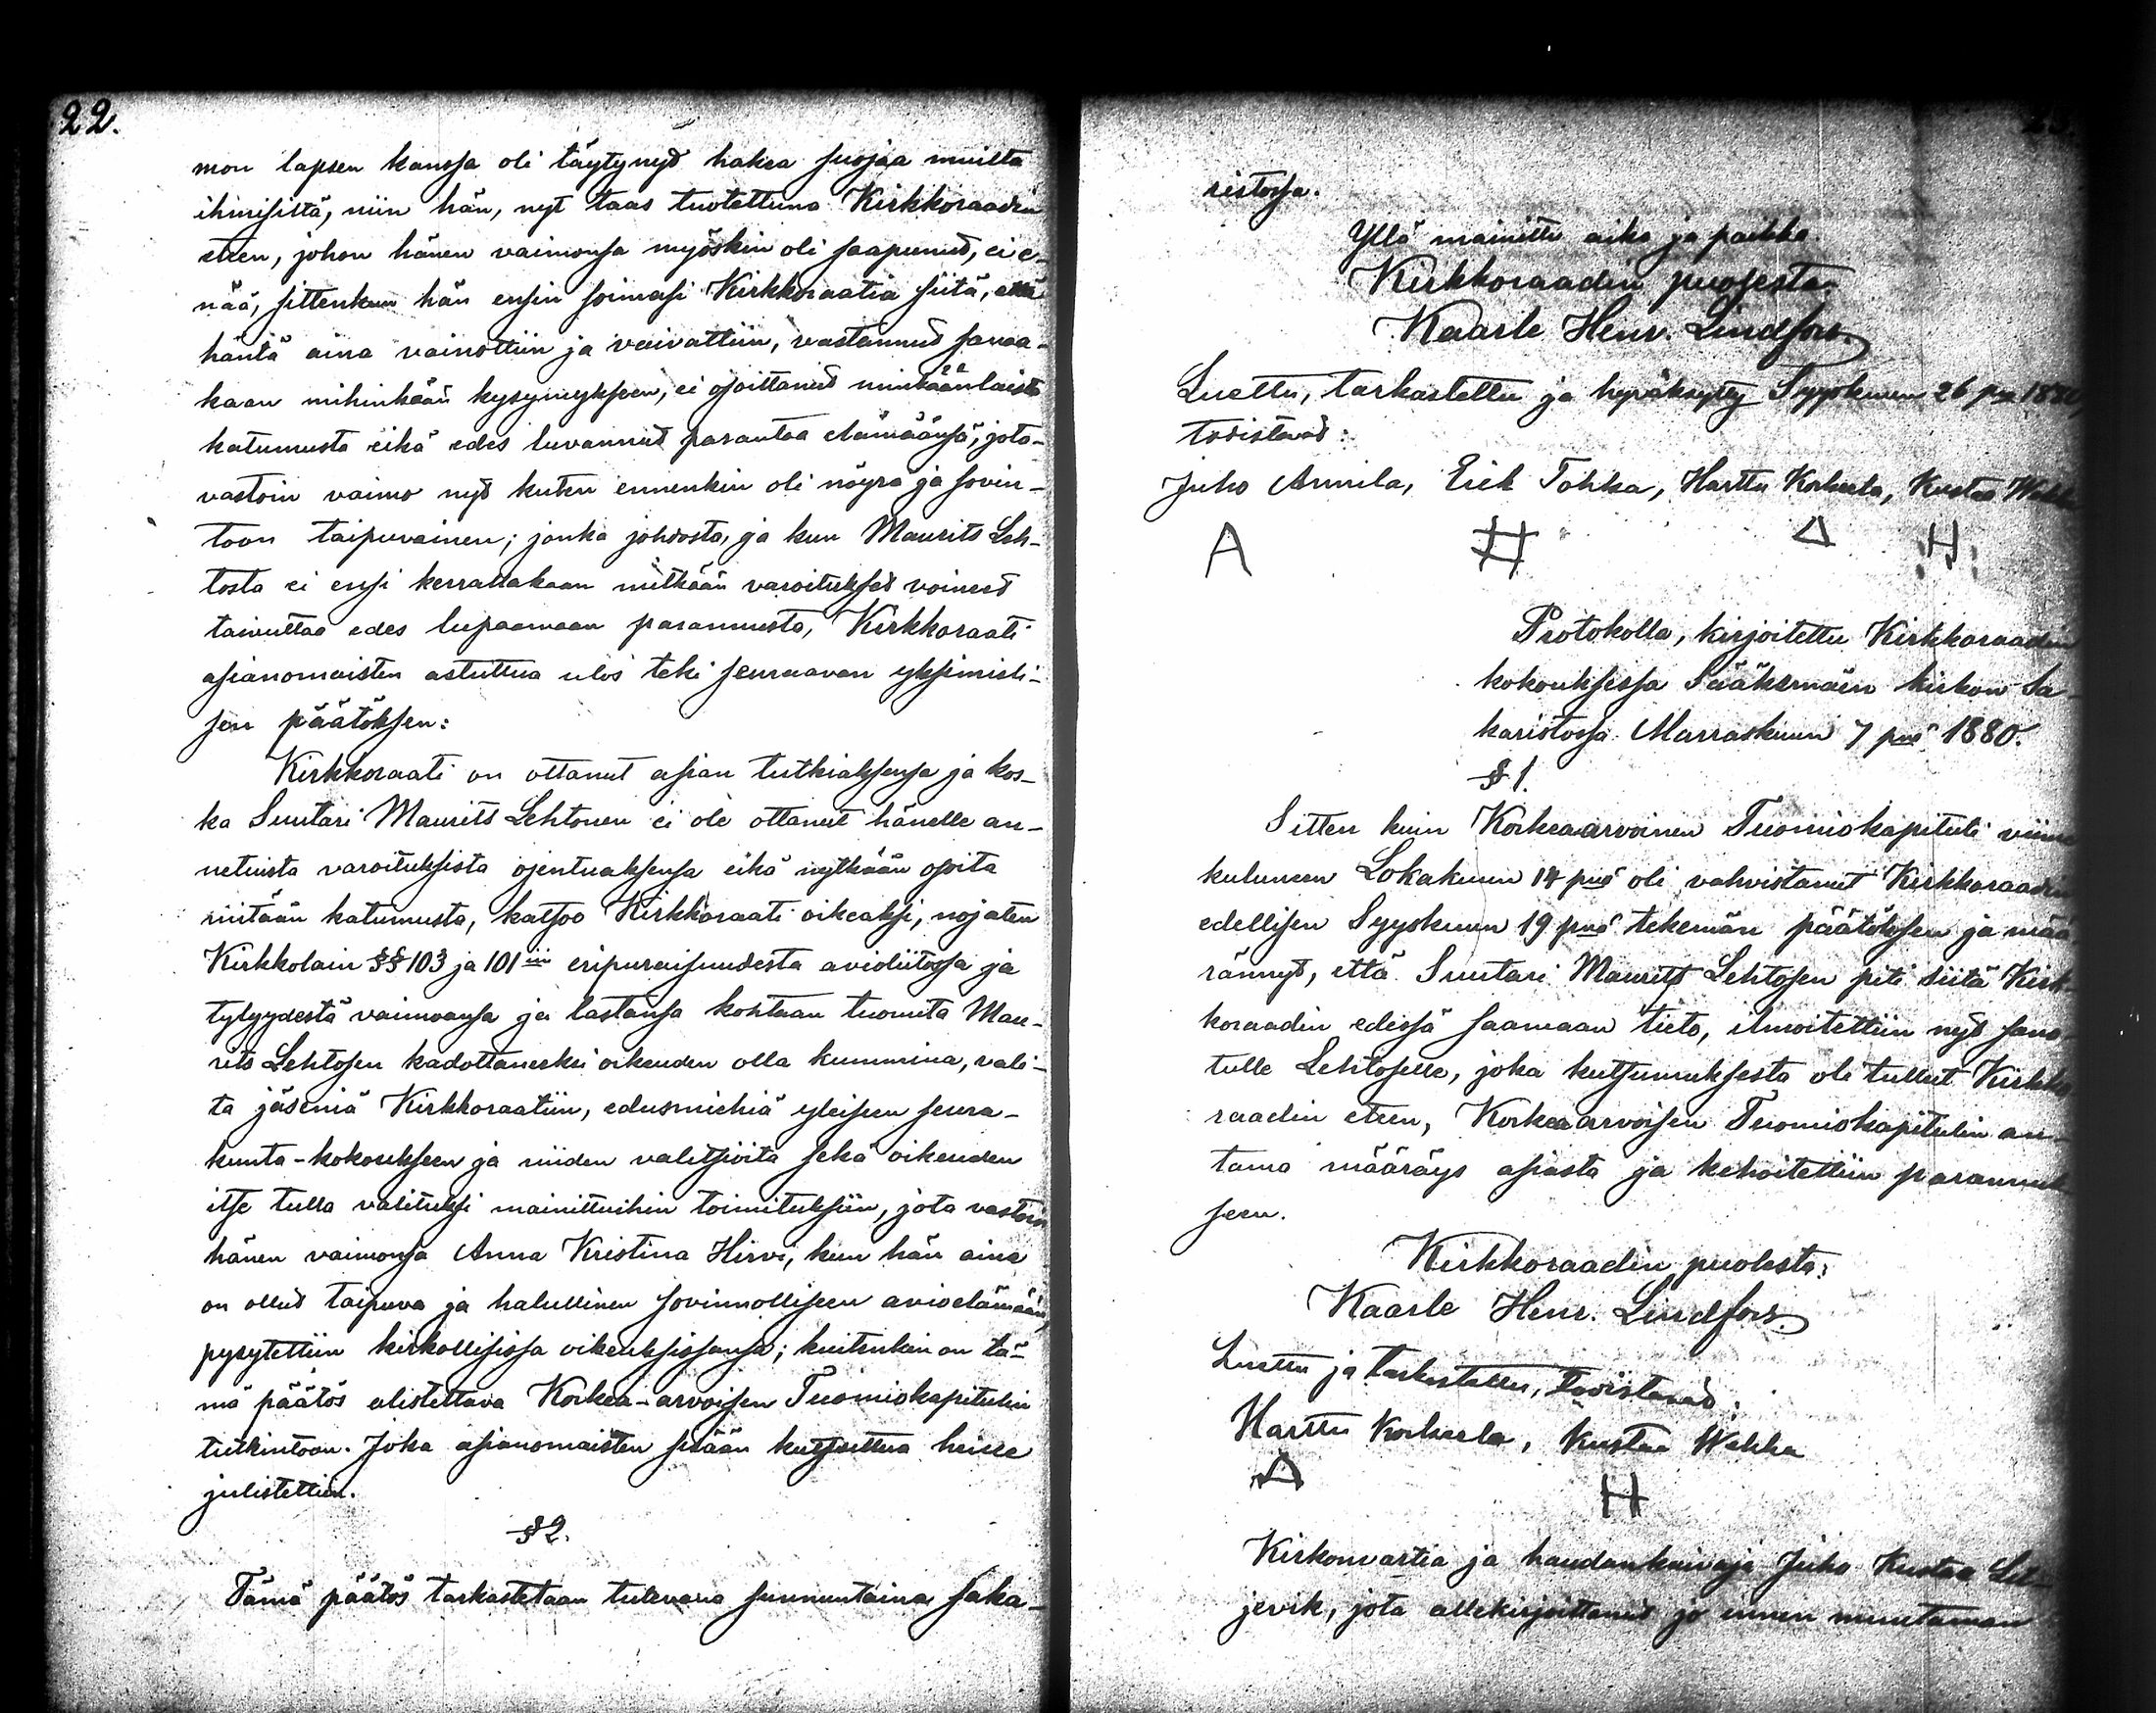 22.
mon lapsen kanssa oli täytynyd hakea suojaa muilta
ihmisistä, niin hän, nyt taas tuotettuna Kirkkoraadin
eteen, johon hänen vaimonsa myöskin oli saapunud, ei e-
nää, sittenkun hän ensin soimasi Kirkkoraatia siitä, että
häntä aina vainottiin ja vaivattiin, vastannud sanaa-
kaan mihinkään kysymykseen, ei osoittanud minkäänlaista
katumusta eikä edes luvannud parantaa elämäänsä, jota-
vastoin vaimo nyd kuten ennenkin oli nöyrä ja sovin-
toon taipuvainen; jonka johdosta, ja kun Maurits Leh-
tosta ei ensi kerrallakaan mitkään varoitukset voineed
taivuttaa edes lupaamaan parannusta, Kirkkoraati
asianomaisten astuttua ulos teki seuraavan yksimieli-
sen päätöksen:
Kirkkoraati on ottanut asian tutkiaksensa ja kos-
ka Suutari Maurits Lehtonen ei ole ottanut hänelle an-
netuista varoituksista ojentuaksensa eikä nytkään osoita
mitään katumusta, katsoo Kirkkoraati oikeaksi, nojaten
Kirkkolain §§ 103 ja 101 iin eripuraisuudesta avioliitossa ja
tylyydestä vaimoansa ja lastansa kohtaan tuomita Mau-
rits Lehtosen kadottaneeksi oikeuden olla kummina, vali-
ta jäseniä Kirkkoraatiin, edusmiehiä yleiseen seura-
kunta-kokoukseen ja niiden valitsioita sekä oikeuden
itse tulla valituksi mainittuihin toimituksiin, jota vastoin
hänen vaimonsa Anna Kristina Hirvi, kun hän aina
on ollud taipuva ja halullinen sovinnolliseen avioelämään,
pysytettiin kirkollisissa oikeuksissansa; kuitenkin on tä-
mä päätös alistettava Korkea-arvoisen Tuomiokapitulin
tutkintoon. Joka asianomaisten sisään kutsuttua heille
julistettiin.
§ 2.
Tämä päätös tarkastetaan tulevana sunnuntaina saka-
ristossa.
Yllä mainittu aika ja paikka.
Kirkkoraadin puolesta
Kaarle Henr. Lindfors.
Luettu, tarkastettu ja hyväksytty Syyskuun 26 pnä 1880,
todistavad:
Juho Annila, Erik Tohka, Harttu Korkeela, Kustaa
A # Δ H
Protokolla, kirjoitettu Kirkkoraadin
kokouksessa Sääksmäen kirkon Sa-
karistossa Marraskuun 7 pnä 1880.
§ 1.
Sitten kuin Korkeaarvoinen Tuomiokapituli viime
kuluneen Lokakuun 14 pnä oli vahvistanut Kirkkoraadin
edellisen Syyskuun 19 pnä tekemän päätöksen ja mää
rännyd, että Suutari Maurits Lehtosen piti siitä Kirk-
koraadin edessä saamaan tieto, ilmoitettiin nyd sano
tulle Lehtoselle, joka kutsumuksesta oli tullut Kirkko
raadin eteen, Korkeaarvoisen Tuomiokapitulin an-
tama määräys asiasta ja kehoitettiin parannuk
seen.
Kirkkoraadin puolesta:
Kaarle Henr. Lindfors.
Luettu ja tarkastettu, todistavad:
Harttu Korkeela, Kustaa Wahka
Δ H
Kirkonvartia ja haudankaivaja Juho Kustaa Lil-
jevik, jota allekirjoittanud jo ennen muutaman